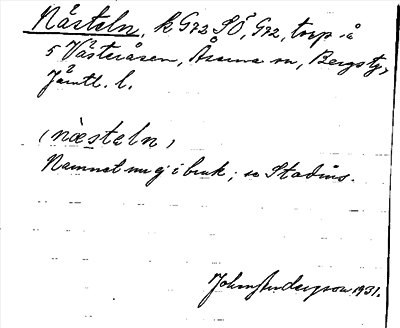 Nästeln, k G72 SÖ, G92, torp å
5 Västeråsen, Brunns sn, Bergs tg,
Jämtl. l.
(næsteln)
Namnet nu ej i bruk; se Stadius.
John Anderzon 1931.